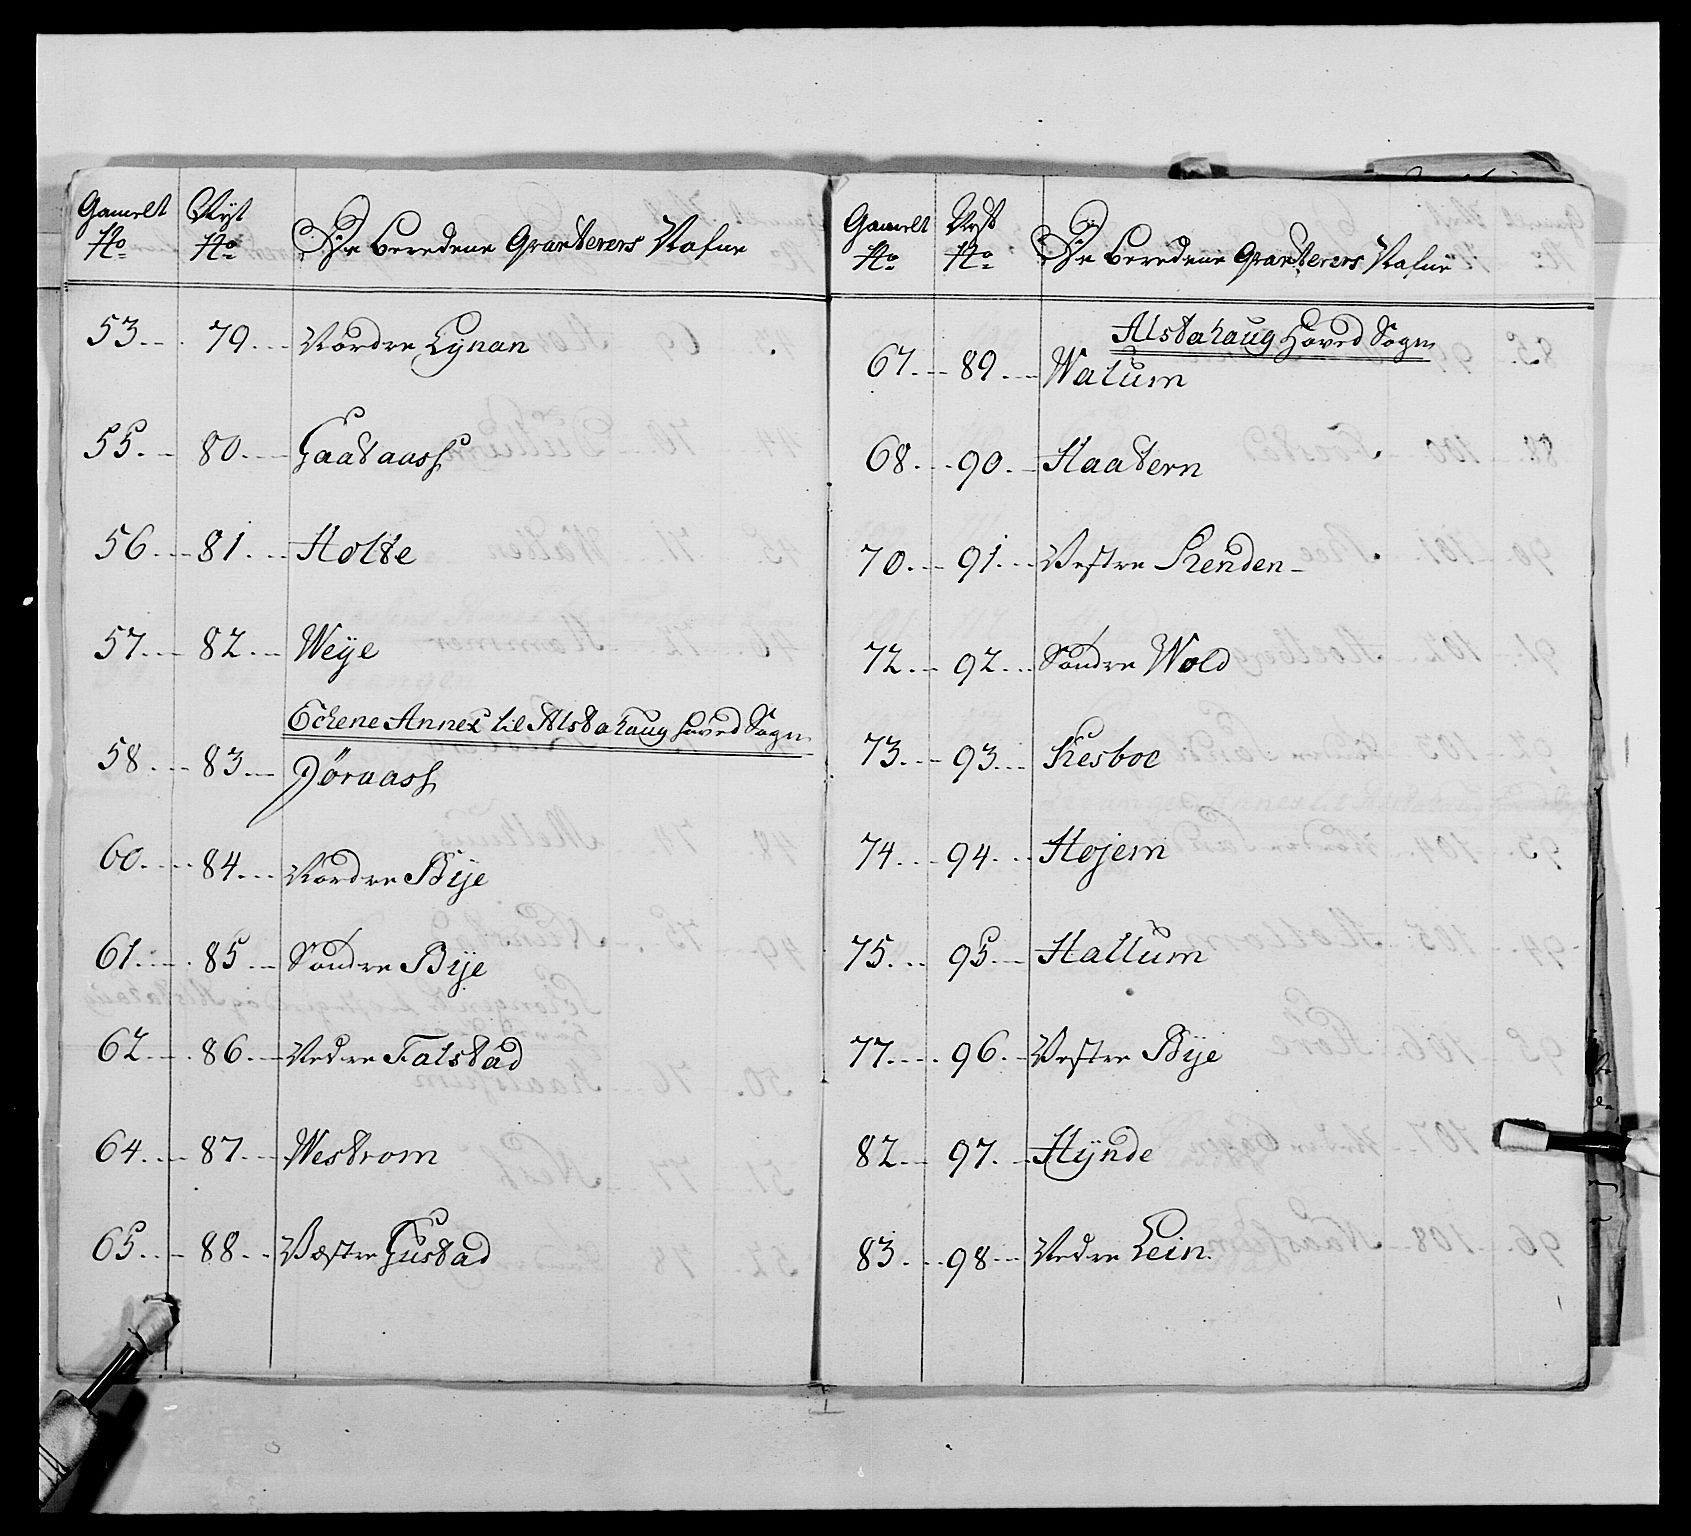 Gamelt No Nyt No De beredene Qvarterers Nafne
53 79 Nordre Lynan
55 80 Gaataass
56 81 Holte
57 82 Weye
Echene Annex til Alstahaug Hoved Sogn
58 83 Döraass
60 84 Nordre Bye
61 85 Söndre Bye
62 86 Nedre Falstad
64 87 Westrom
65 88 Væstre Gustad
Gamelt No Nyt No De beredene Qvarterers Nafne
Alstahaug Hoved Sogn
67 89 Walum
68 90 Haatern
70 91 Vestre Skenden
72 92 Söndre Wold
73 93 Kesboe
74 94 Hojem
75 95 Hallum
77 96 Vestre Bye
82 97 Hynde
83 98 Nedre Lein